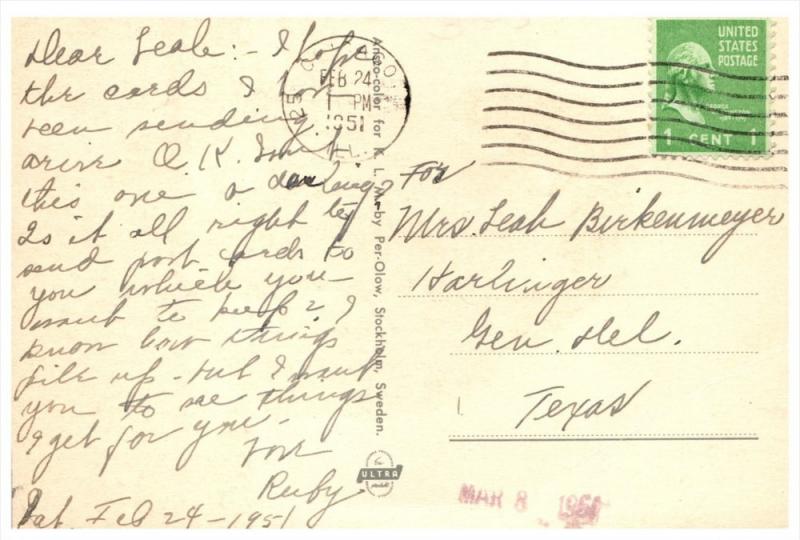 Dear Leah:- I hope
the cards I have
been sending
arive O.K. Isn't
this one a darling?
Is it all right to
send post cards to
you which you
want to keep? I
know how things
pile up - but I want
you to see things
I get for you.
Love
Ruby
Sat. Feb 24 - 1951
FEB 24
PM
1951
Ansco-color for K. L. M. by Per-Olow, Stockholm, Sweden.
ULTRA
UNITED
STATES
POSTAGE
1 CENT 1
For
Mrs. Leah Birkenmeyer
Harlinger
Gen. Del.
Texas
MAR 8 1951